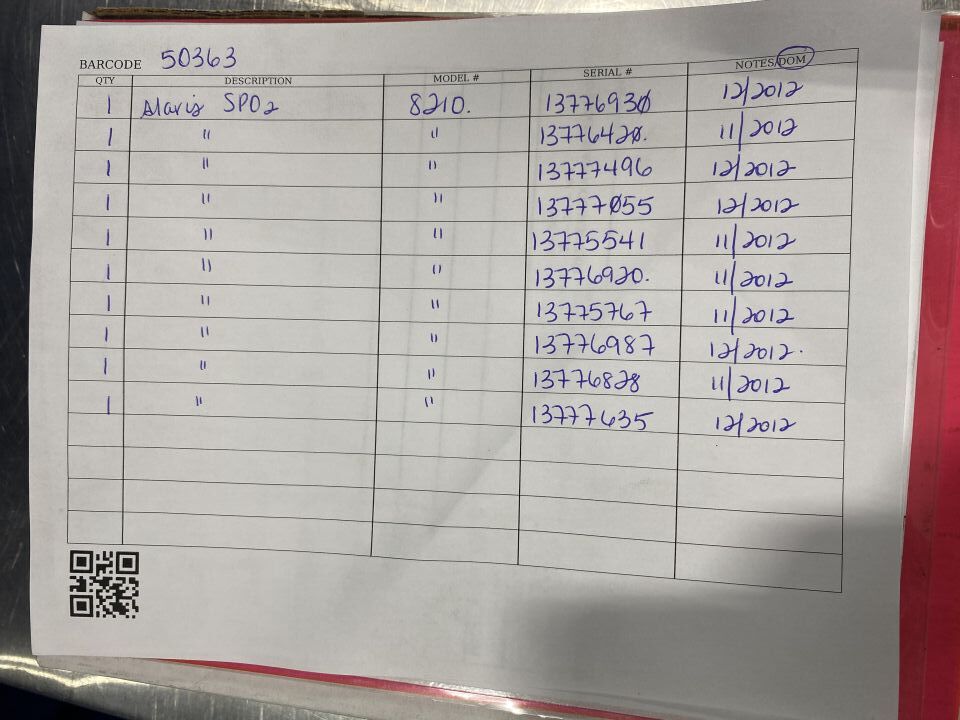 BARCODE 50363
QTY DESCRIPTION MODEL # SERIAL # NOTES/DOM
1 Alaris SPO2 8210. 13776930 12/2012
1 " " 13776420. 11/2012
1 " " 13777496 12/2012
1 " " 13777055 12/2012
1 " " 13775541 11/2012
1 " " 13776920. 11/2012
1 " " 13775767 11/2012
1 " " 13776987 12/2012.
1 " " 13776828 11/2012
1 " " 13777635 12/2012